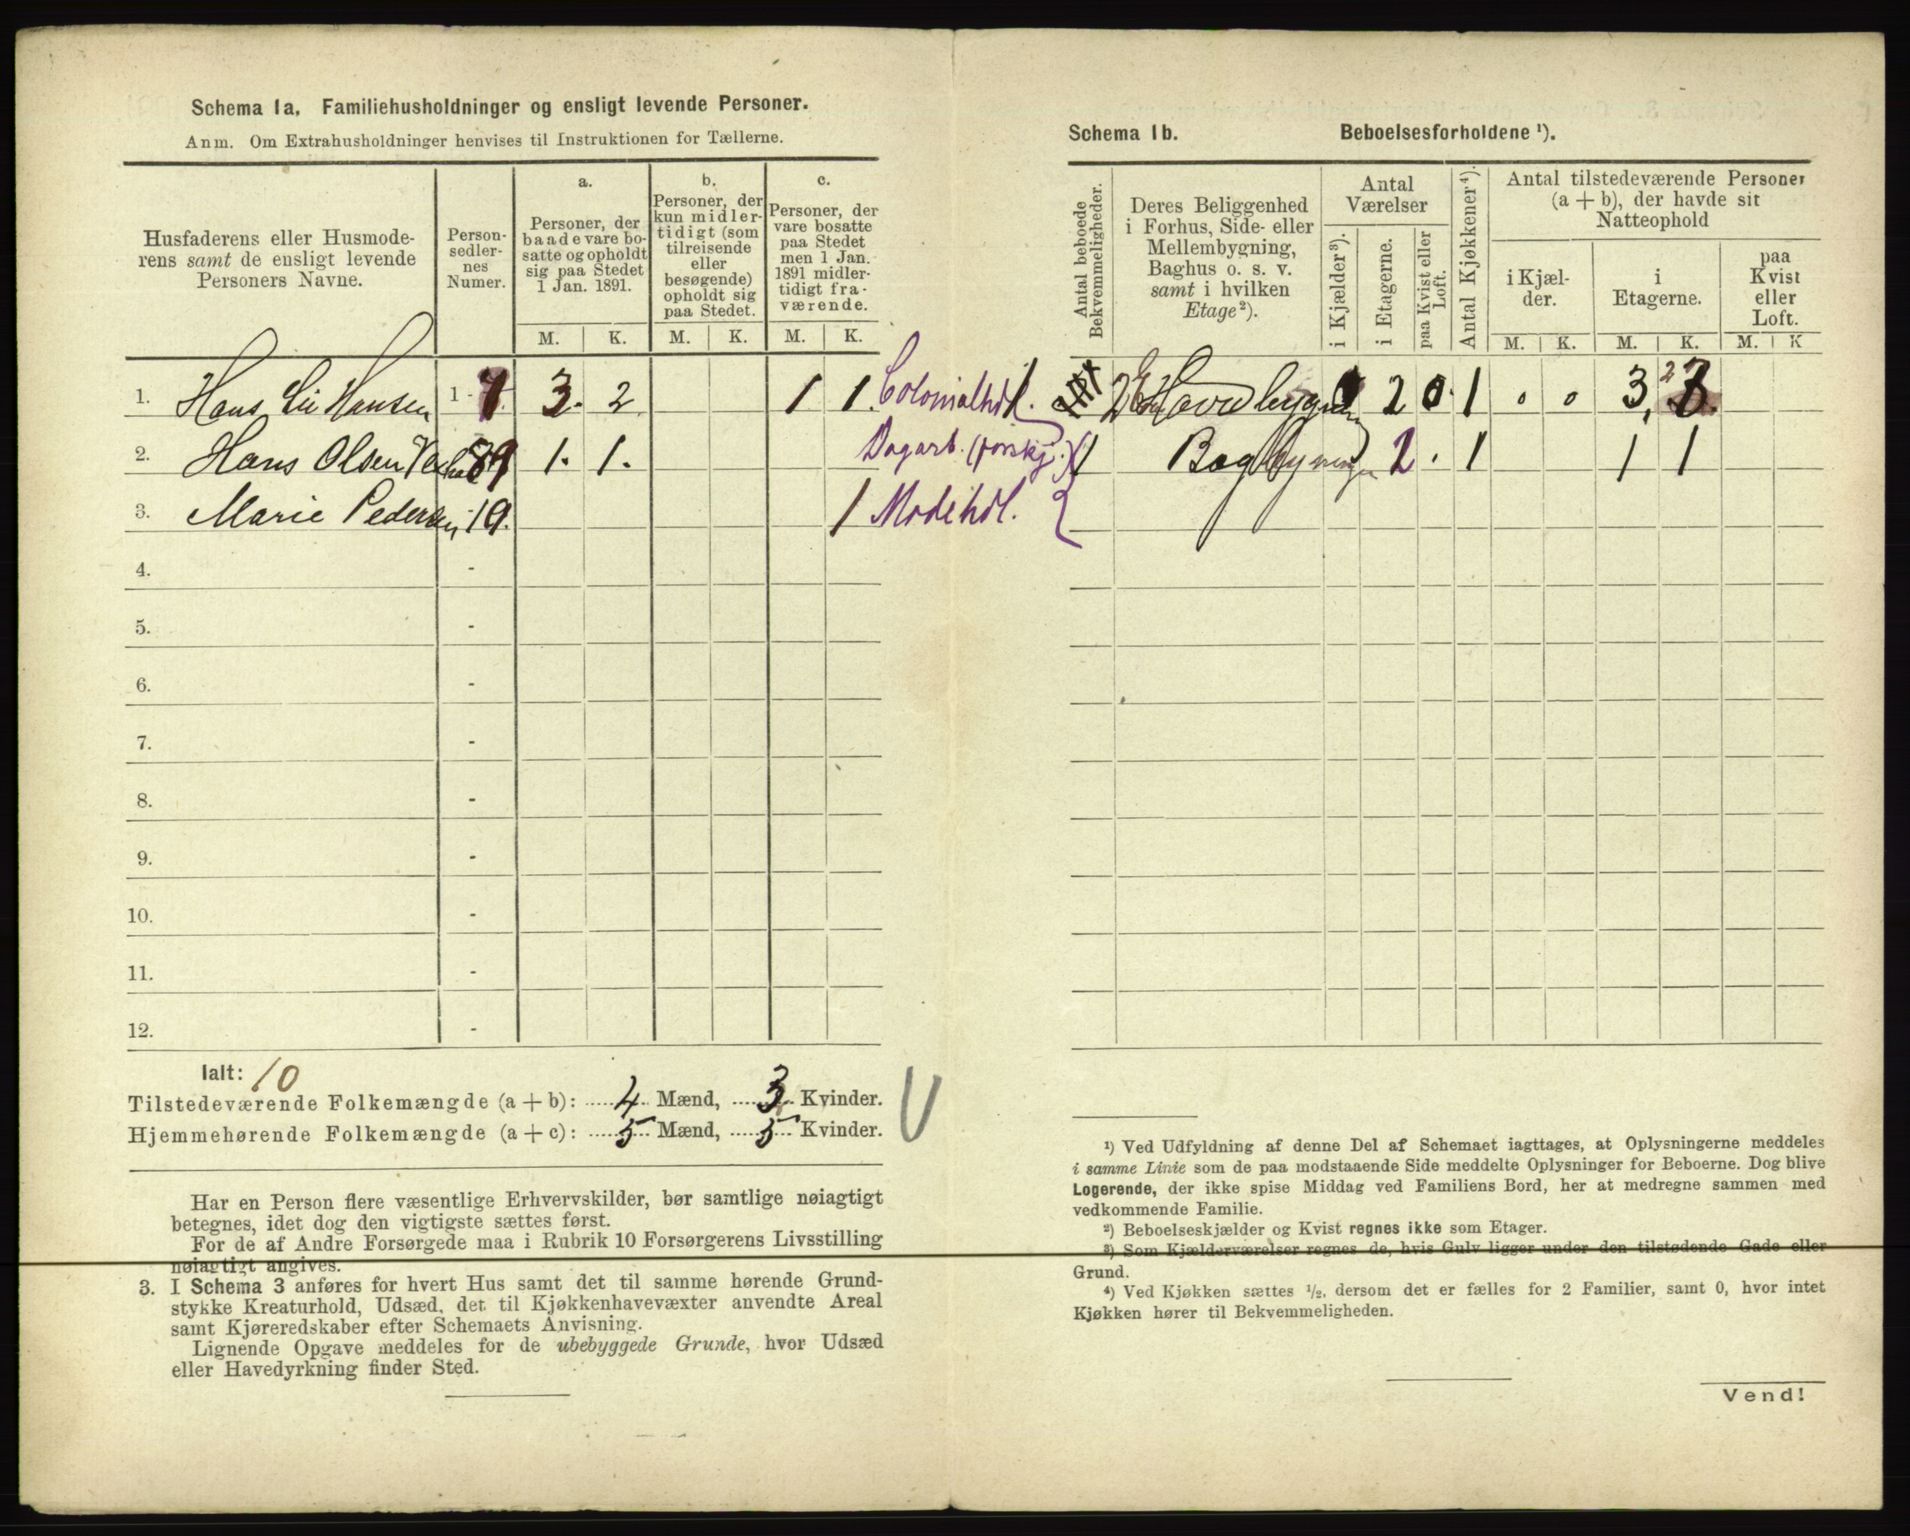 Schema 1a, Familiehusholdninger og ensligt levende Personer.
Anm. Om Extrahusholdninger henvises til Instruktionen for Tællerne.
Husfaderens eller Husmode-
rens samt de ensligt levende
Personers Navne.
Person-
sedler-
nes
Numer.
a.
Personer, der
baade vare bo-
satte og opholdt
sig paa Stedet
1 Jan. 1891.
b.
Personer, der
kun midler-
tidigt (som
tilreisende
eller
besøgende)
opholdt sig
paa Stedet.
c.
Personer, der
vare bosatte
paa Stedet
men 1 Jan.
1891 midler-
tidigt fra-
værende.
M. K. M. K. M. K.
1. Hans Hansen 1 - 3. 2 1 1. Colonialhdl.
2. Hans Olsen 89 1. 1. Dagarb. (forskj.)
3. Marie Pedersen 19. 1 Modehdl.
4. -
5. -
6. -
7. -
8. -
9. -
10. -
11. -
12. -
Ialt: 10
Tilstedeværende Folkemængde (a + b): 4 Mænd, 3 Kvinder.
Hjemmehørende Folkemængde (a + c): 5 Mænd, 5 Kvinder.
Har en Person flere væsentlige Erhvervskilder, bør samtlige nøiagtigt
betegnes, idet dog den vigtigste sættes først.
For de af Andre Forsørgede maa i Rubrik 10 Forsørgerens Livsstilling
nøiagtigt angives.
3. I Schema 3 anføres for hvert Hus samt det til samme hørende Grund-
stykke Kreaturhold, Udsæd, det til Kjøkkenhavevæxter anvendte Areal
samt Kjøreredskaber efter Schemaets Anvisning.
Lignende Opgave meddeles for de ubebyggede Grunde, hvor Udsæd
eller Havedyrkning finder Sted.
Schema 1b. Beboelsesforholdene ¹).
Antal beboede
Bekvemmeligheder.
Deres Beliggenhed
i Forhus, Side- eller
Mellembygning,
Baghus o. s. v.
samt i hvilken
Etage²).
Antal
Værelser
i Kjælder³).
i Etagerne.
paa Kvist eller
Loft.
Antal Kjøkkener⁴).
Antal tilstedeværende Personer
(a + b), der havde sit
Natteophold
i Kjæl-
der.
i
Etagerne.
paa
Kvist
eller
Loft.
M. K. M. K. M. K
1 Hovedbygning 2 0 1 0 0 3, 2
1 Bagbygningen 2 . 1 1 1
¹) Ved Udfyldning af denne Del af Schemaet iagttages, at Oplysningerne meddeles
i samme Linie som de paa modstaaende Side meddelte Oplysninger for Beboerne. Dog blive
Logerende, der ikke spise Middag ved Familiens Bord, her at medregne sammen med
vedkommende Familie.
²) Beboelseskjælder og Kvist regnes ikke som Etager.
³) Som Kjælderværelser regnes de, hvis Gulv ligger under den tilstødende Gade eller
Grund.
⁴) Ved Kjøkken sættes ½, dersom det er fælles for 2 Familier, samt 0, hvor intet
Kjøkken hører til Bekvemmeligheden.
Vend!